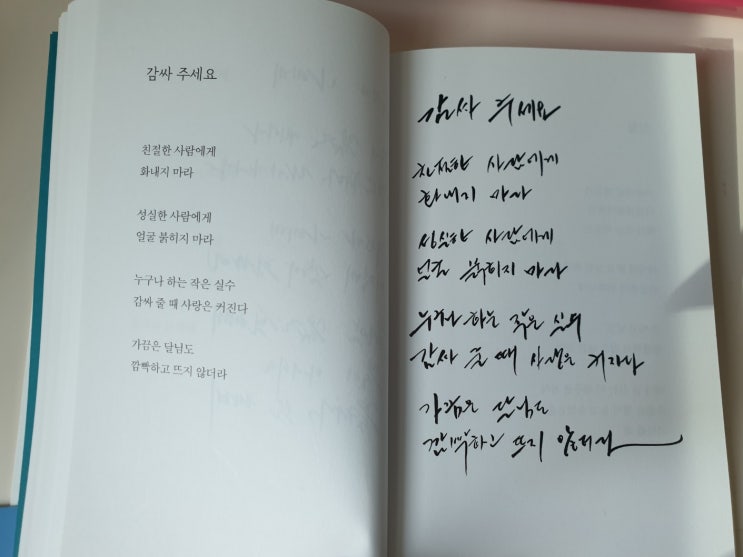 감싸 주세요
친절한 사람에게
화내지 마라
성실한 사람에게
얼굴 붉히지 마라
누구나 하는 작은 실수
감싸 줄 때 사랑은 커진다
가끔은 달님도
깜빡하고 뜨지 않더라
감싸 주세요
친절한 사람에게
화내지 마라
성실한 사람에게
얼굴 붉히지 마라
누구나 하는 작은 실수
감싸 줄 때 사랑은 커진다
가끔은 달님도
깜빡하고 뜨지 않더라